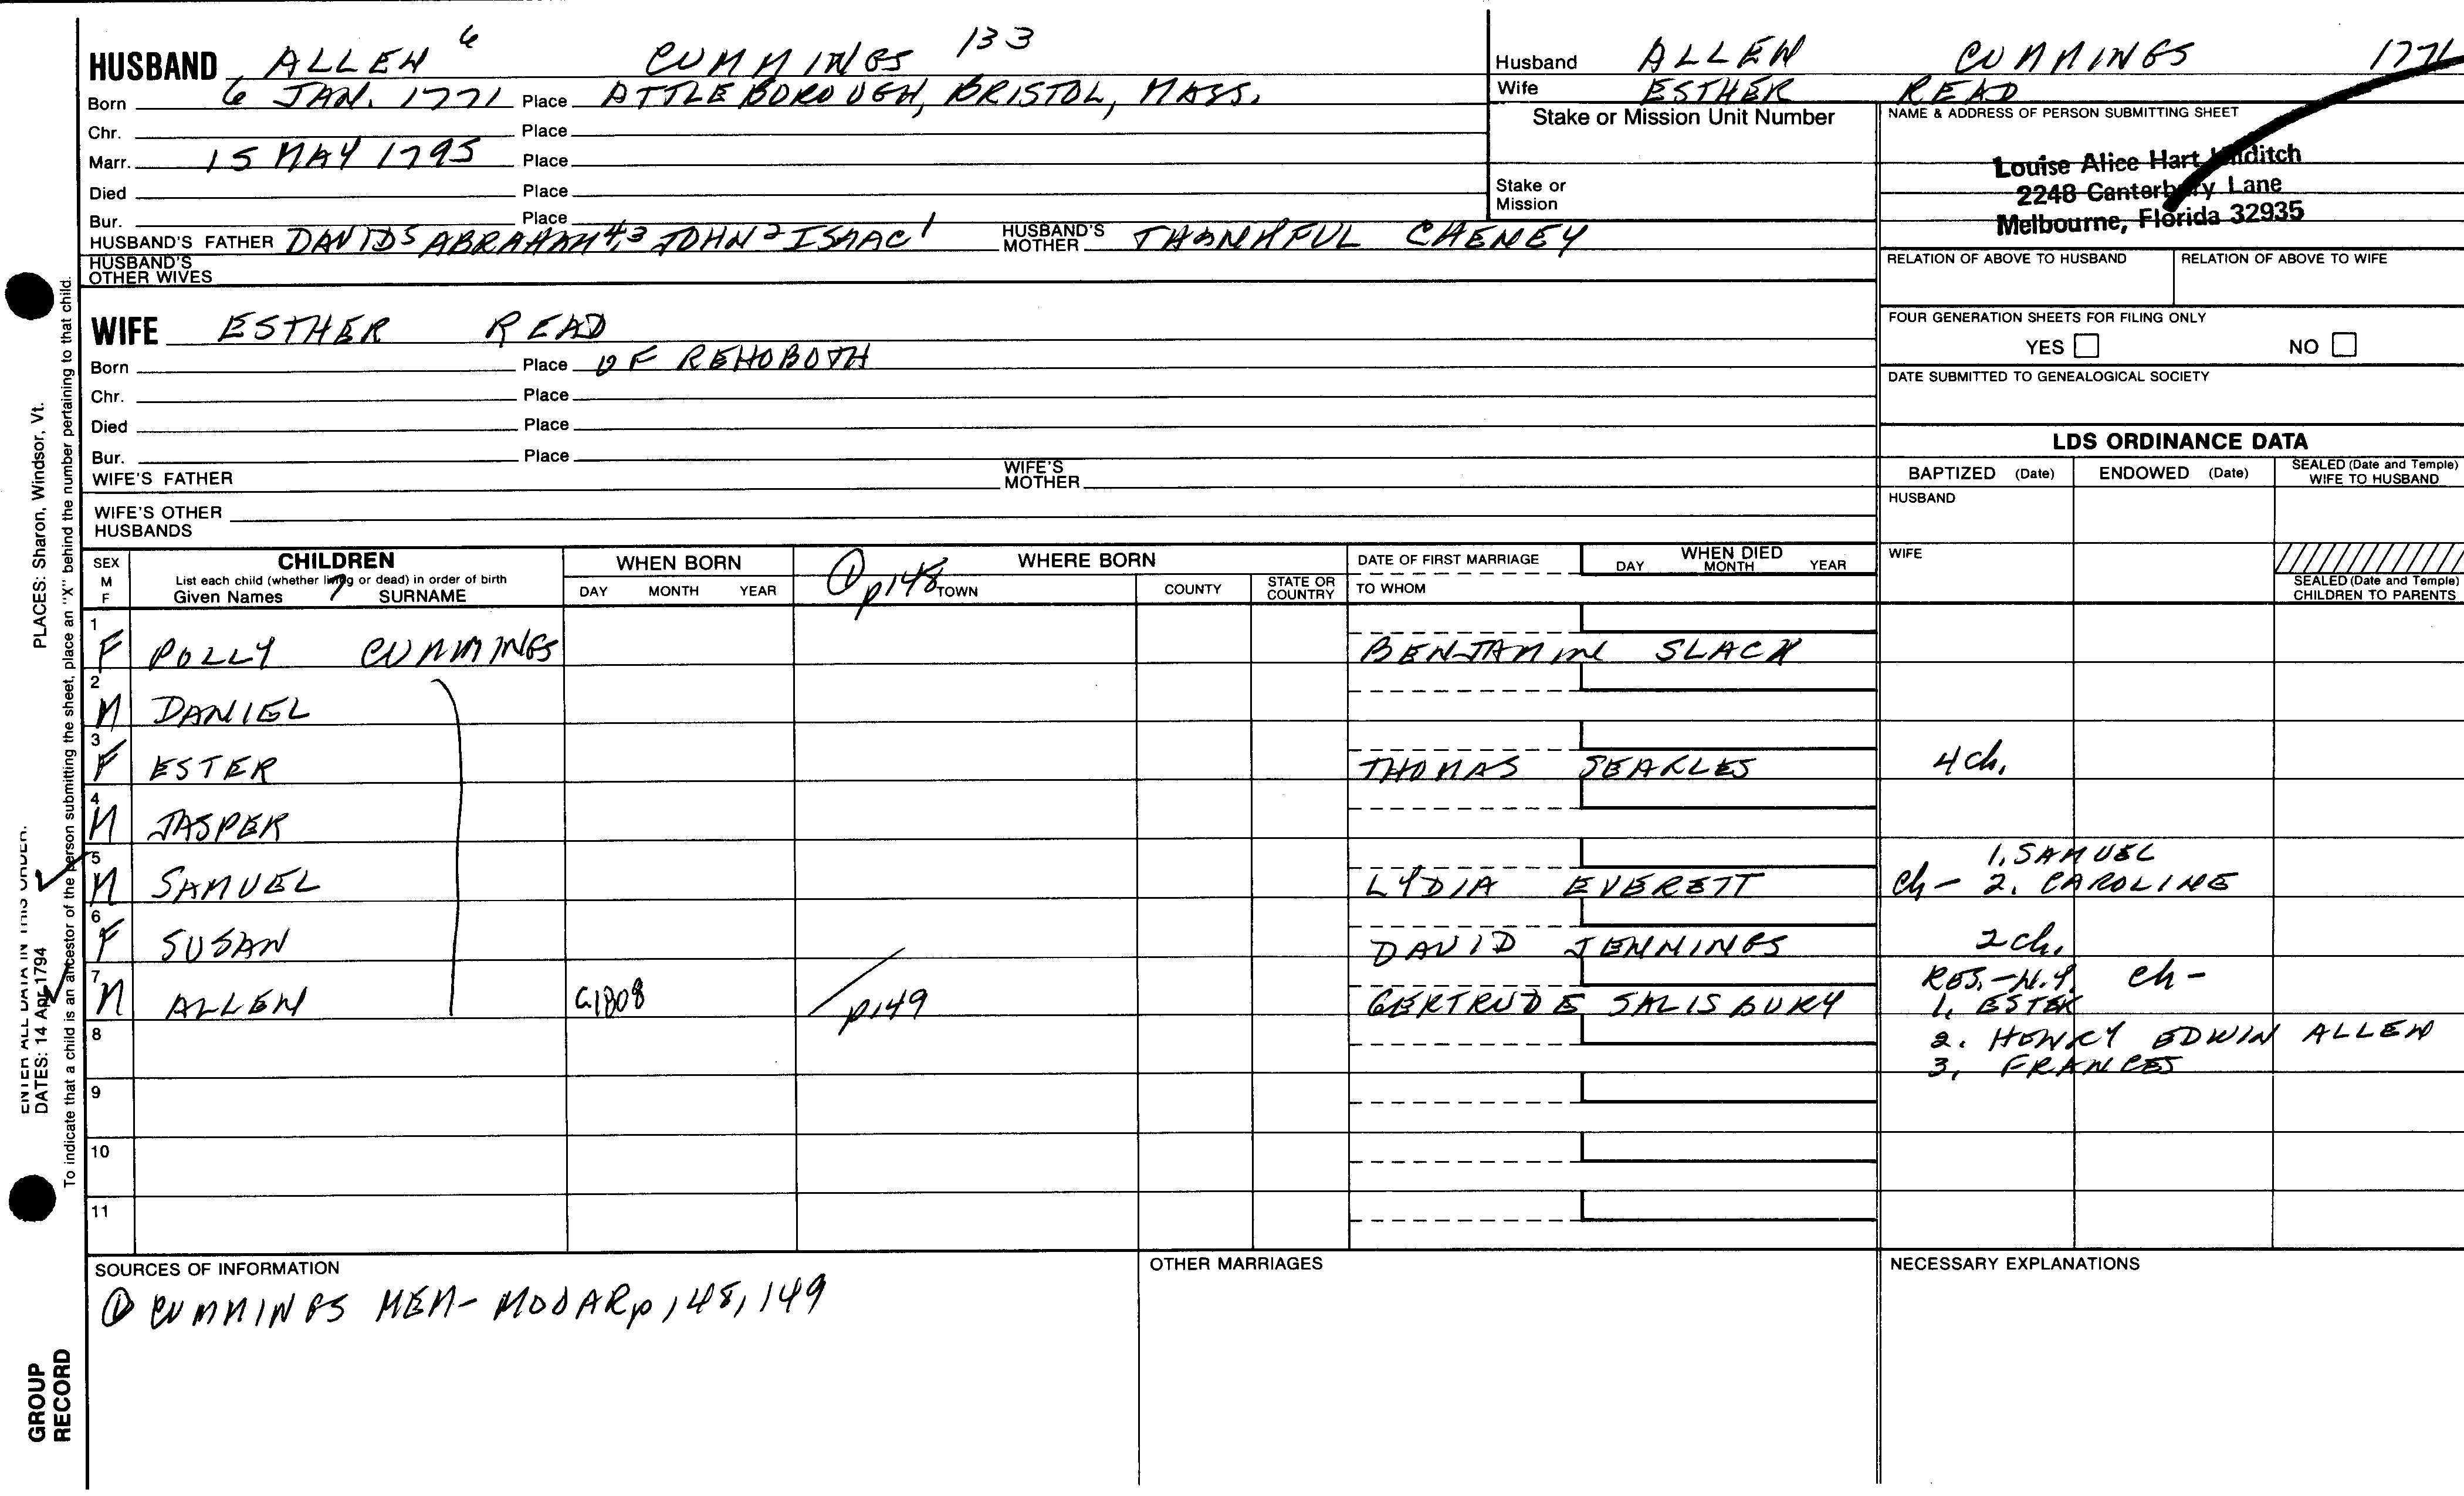 HUSBAND ALLEN 6 CUMMINGS 133
Born 6 JAN. 1771 Place ATTLEBOROUGH, BRISTOL, MASS.
Chr. Place
Marr. 15 MAY 1795 Place
Died Place
Bur. Place
HUSBAND'S FATHER DAVID5 ABRAHAM4,3 JOHN2 ISAAC1 HUSBAND'S MOTHER THANKFUL CHENEY
HUSBAND'S OTHER WIVES
Husband ALLEN CUMMINGS
Wife ESTHER READ
Stake or Mission Unit Number
Stake or Mission
NAME & ADDRESS OF PERSON SUBMITTING SHEET
Louise Alice Hart
2248 Canterbury Lane
Melbourne, Florida 32935
RELATION OF ABOVE TO HUSBAND RELATION OF ABOVE TO WIFE
FOUR GENERATION SHEETS FOR FILING ONLY
YES NO
DATE SUBMITTED TO GENEALOGICAL SOCIETY
WIFE ESTHER READ
Born Place OF REHOBOTH
Chr. Place
Died Place
Bur. Place
WIFE'S FATHER WIFE'S MOTHER
WIFE'S OTHER HUSBANDS
LDS ORDINANCE DATA
BAPTIZED (Date) ENDOWED (Date) SEALED (Date and Temple) WIFE TO HUSBAND
HUSBAND
WIFE
SEALED (Date and Temple) CHILDREN TO PARENTS
SEX M F
CHILDREN
List each child (whether living or dead) in order of birth
Given Names 7 SURNAME
WHEN BORN
DAY MONTH YEAR
① p148
WHERE BORN
TOWN COUNTY STATE OR COUNTRY
DATE OF FIRST MARRIAGE
TO WHOM
WHEN DIED
DAY MONTH YEAR
1 F POLLY CUMMINGS BENJAMIN SLACK
2 M DANIEL
3 F ESTER THOMAS SEARLES 4 ch.
4 M JASPER
5 M SAMUEL LYDIA EVERETT ch- 1. SAMUEL
2. CAROLINE
6 F SUSAN DAVID JENNINGS 2 ch.
7 M ALLEN C1808 p149 GERTRUDE SALISBURY RES.-N.Y. ch-
1. ESTER
2. HENRY EDWIN ALLEN
3. FRANCES
8
9
10
11
SOURCES OF INFORMATION
① CUMMINGS MEM- MOOAR p148, 149
OTHER MARRIAGES
NECESSARY EXPLANATIONS
DATES: 14 Apr 1794
PLACES: Sharon, Windsor, Vt.
To indicate that a child is an ancestor of the person submitting the sheet, place an "X" behind the number pertaining to that child.
GROUP
RECORD